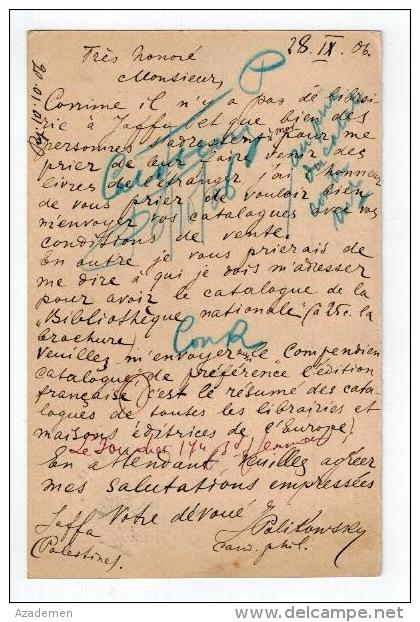 28. IX. 06.
Très honoré
Monsieur,
Comme il n'y a pas de librai-
rie à Jaffa et que bien des
personnes s'adressent à moi pour me
prier de leur faire venir des
livres de l'étranger j'ai l'honneur
de vous prier de vouloir bien
m'envoyer vos catalogues avec vos
conditions de vente.
En outre je vous prierais de
me dire à qui je dois m'adresser
pour avoir le catalogue de la
"Bibliothèque nationale" (à 25c. la
brochure)
Veuillez m'envoyer le "Compendien
catalogue" de préférence l'édition
française (c'est le résumé des cata-
logues de toutes les librairies et
maisons éditrices de l'Europe)
En attendant, veuillez agréer
mes salutations empressées
Votre dévoué
Jaffa
Palestine.
Palikowsky
cand. phil.
© Azademen
www.delcampe.net